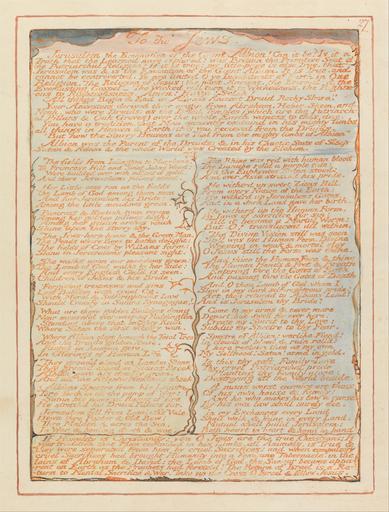 27
To the Jews
Jerusalem the Emanation of the Giant Albion! Can it be? Is it a
Truth that the Learned have explored? Was Britain the Primitive Seat of
the Patriarchal Religion? If it is true: my title-page is also True, that
Jerusalem was & is the Emanation of the Giant Albion. It is True, and
cannot be controverted. Ye are united O ye Inhabitants of Earth in One
Religion. The Religion of Jesus: the most Ancient, the Eternal: & the
Everlasting Gospel—The Wicked will turn it to Wickedness, the Righte-
ous to Righteousness. Amen! Huzza! Selah!
All things Begin & End in Albions Ancient Druid Rocky Shore.
Your Ancestors derived their origin from Abraham, Heber, Shem, and
Noah, who were Druids: as the Druid Temples (which are the Patriarchal
Pillars & Oak Groves) over the whole Earth witness to this day.
You have a tradition, that Man anciently containd in his mighty limbs
all things in Heaven & Earth: this you recieved from the Druids.
But now the Starry Heavens are fled from the mighty limbs of Albion
Albion was the Parent of the Druids; & in his Chaotic State of Sleep
Satan & Adam & the whole World was Created by the Elohim.
The fields from Islington to Marybone,
To Primrose Hill and Saint Johns Wood:
Were builded over with pillars of gold,
And there Jerusalems pillars stood.
Her Little-ones ran on the fields
The Lamb of God among them seen
And fair Jerusalem his Bride:
Among the little meadows green.
Pancrass & Kentish-town repose
Among her golden pillars high:
Among her golden arches which
Shine upon the starry sky.
The Jews-harp-house & the Green Man;
The Ponds where Boys to bathe delight:
The fields of Cows by Willans farm:
Shine in Jerusalems pleasant sight.
She walks upon our meadows green:
The Lamb of God walks by her side:
And every English Child is seen,
Children of Jesus & his Bride,
Forgiving trespasses and sins
Lest Babylon with cruel Og,
With Moral & Self-righteous Law
Should Crucify in Satans Synagogue!
What are those golden Builders doing
Near mournful ever-weeping Paddington
Standing above that mighty Ruin
Where Satan the first victory won.
Where Albion slept beneath the Fatal Tree
And the Druids golden Knife,
Rioted in human gore,
In Offerings of Human Life
They groan'd aloud on London Stone
They groan'd aloud on Tyburns Brook
Albion gave his deadly groan,
And all the Atlantic Mountains shook
Albions Spectre from his Loins
Tore forth in all the pomp of War!
Satan his name: in flames of fire
He stretch'd his Druid Pillars far.
Jerusalem fell from Lambeth's Vale,
Down thro Poplar & Old Bow;
Thro Malden & acros the Sea,
In War & howling death & woe.
The Rhine was red with human blood:
The Danube rolld a purple tide:
On the Euphrates Satan stood:
And over Asia stretch'd his pride.
He witherd up sweet Zions Hill,
From every Nation of the Earth:
He witherd up Jerusalems Gates,
And in a dark Land gave her birth.
He witherd up the Human Form,
By laws of sacrifice for sin:
Till it became a Mortal Worm:
But O! translucent all within.
The Divine Vision still was seen
Still was the Human Form, Divine
Weeping in weak & mortal clay
O Jesus still the Form was thine.
And thine the Human Face & thine
The Human Hands & Feet & Breath
Entering thro' the Gates of Birth
And passing thro' the Gates of Death
And O thou Lamb of God, whom I
Slew in my dark self-righteous pride:
Art thou return'd to Albions Land!
And is Jerusalem thy Bride?
Come to my arms & never more
Depart; but dwell for ever here:
Create my Spirit to thy Love:
Subdue my Spectre to thy Fear.
Spectre of Albion! warlike Fiend!
In clouds of blood & ruin roll'd:
I here reclaim thee as my own
My Selfhood! Satan! armd in gold.
Is this thy soft Family-Love
Thy cruel Patriarchal pride
Planting thy Family alone,
Destroying all the World beside.
A mans worst enemies are those
Of his own house & family;
And he who makes his law a curse,
By his own law shall surely die.
In my Exchanges every Land
Shall walk, & mine in every Land,
Mutual shall build Jerusalem:
Both heart in heart & hand in hand.
If Humility is Christianity; you O Jews are the true Christians; If
your tradition that Man contained in his Limbs, all Animals, is True & they
were separated from him by cruel Sacrifices: and when compulsory
cruel Sacrifices had brought Humanity into a Feminine Tabernacle, in the
loins of Abraham & David: the Lamb of God, the Saviour became appa-
rent on Earth as the Prophets had foretold? The Return of Israel is a Re-
turn to Mental Sacrifice & War. Take up the Cross O Israel & follow Jesus.